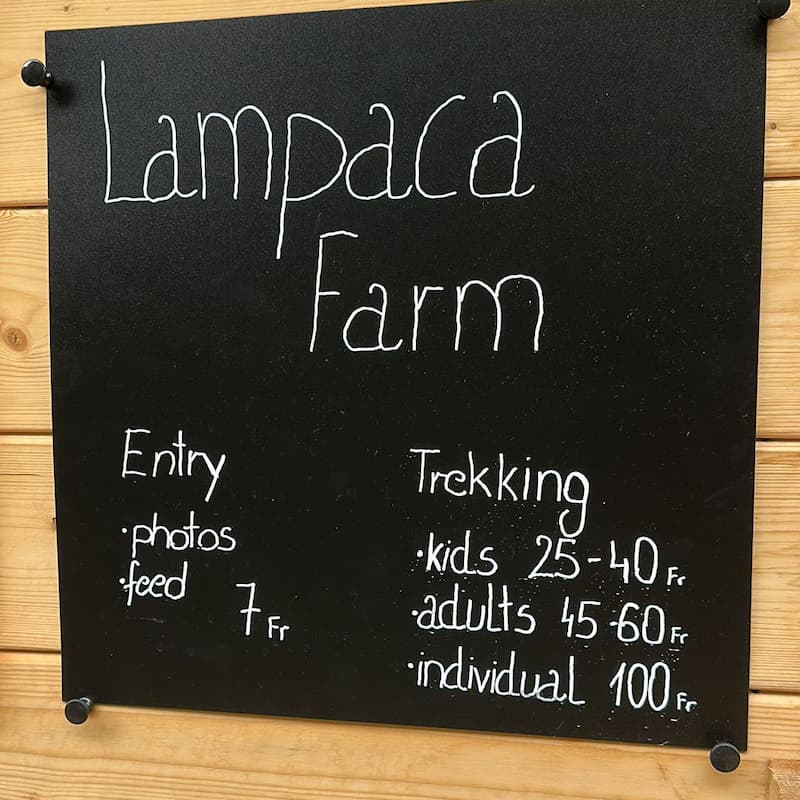 Lampaca
Farm
Entry
·photos
·feed
7 Fr
Trekking
·kids 25-40 Fr
·adults 45-60 Fr
·individual 100 Fr